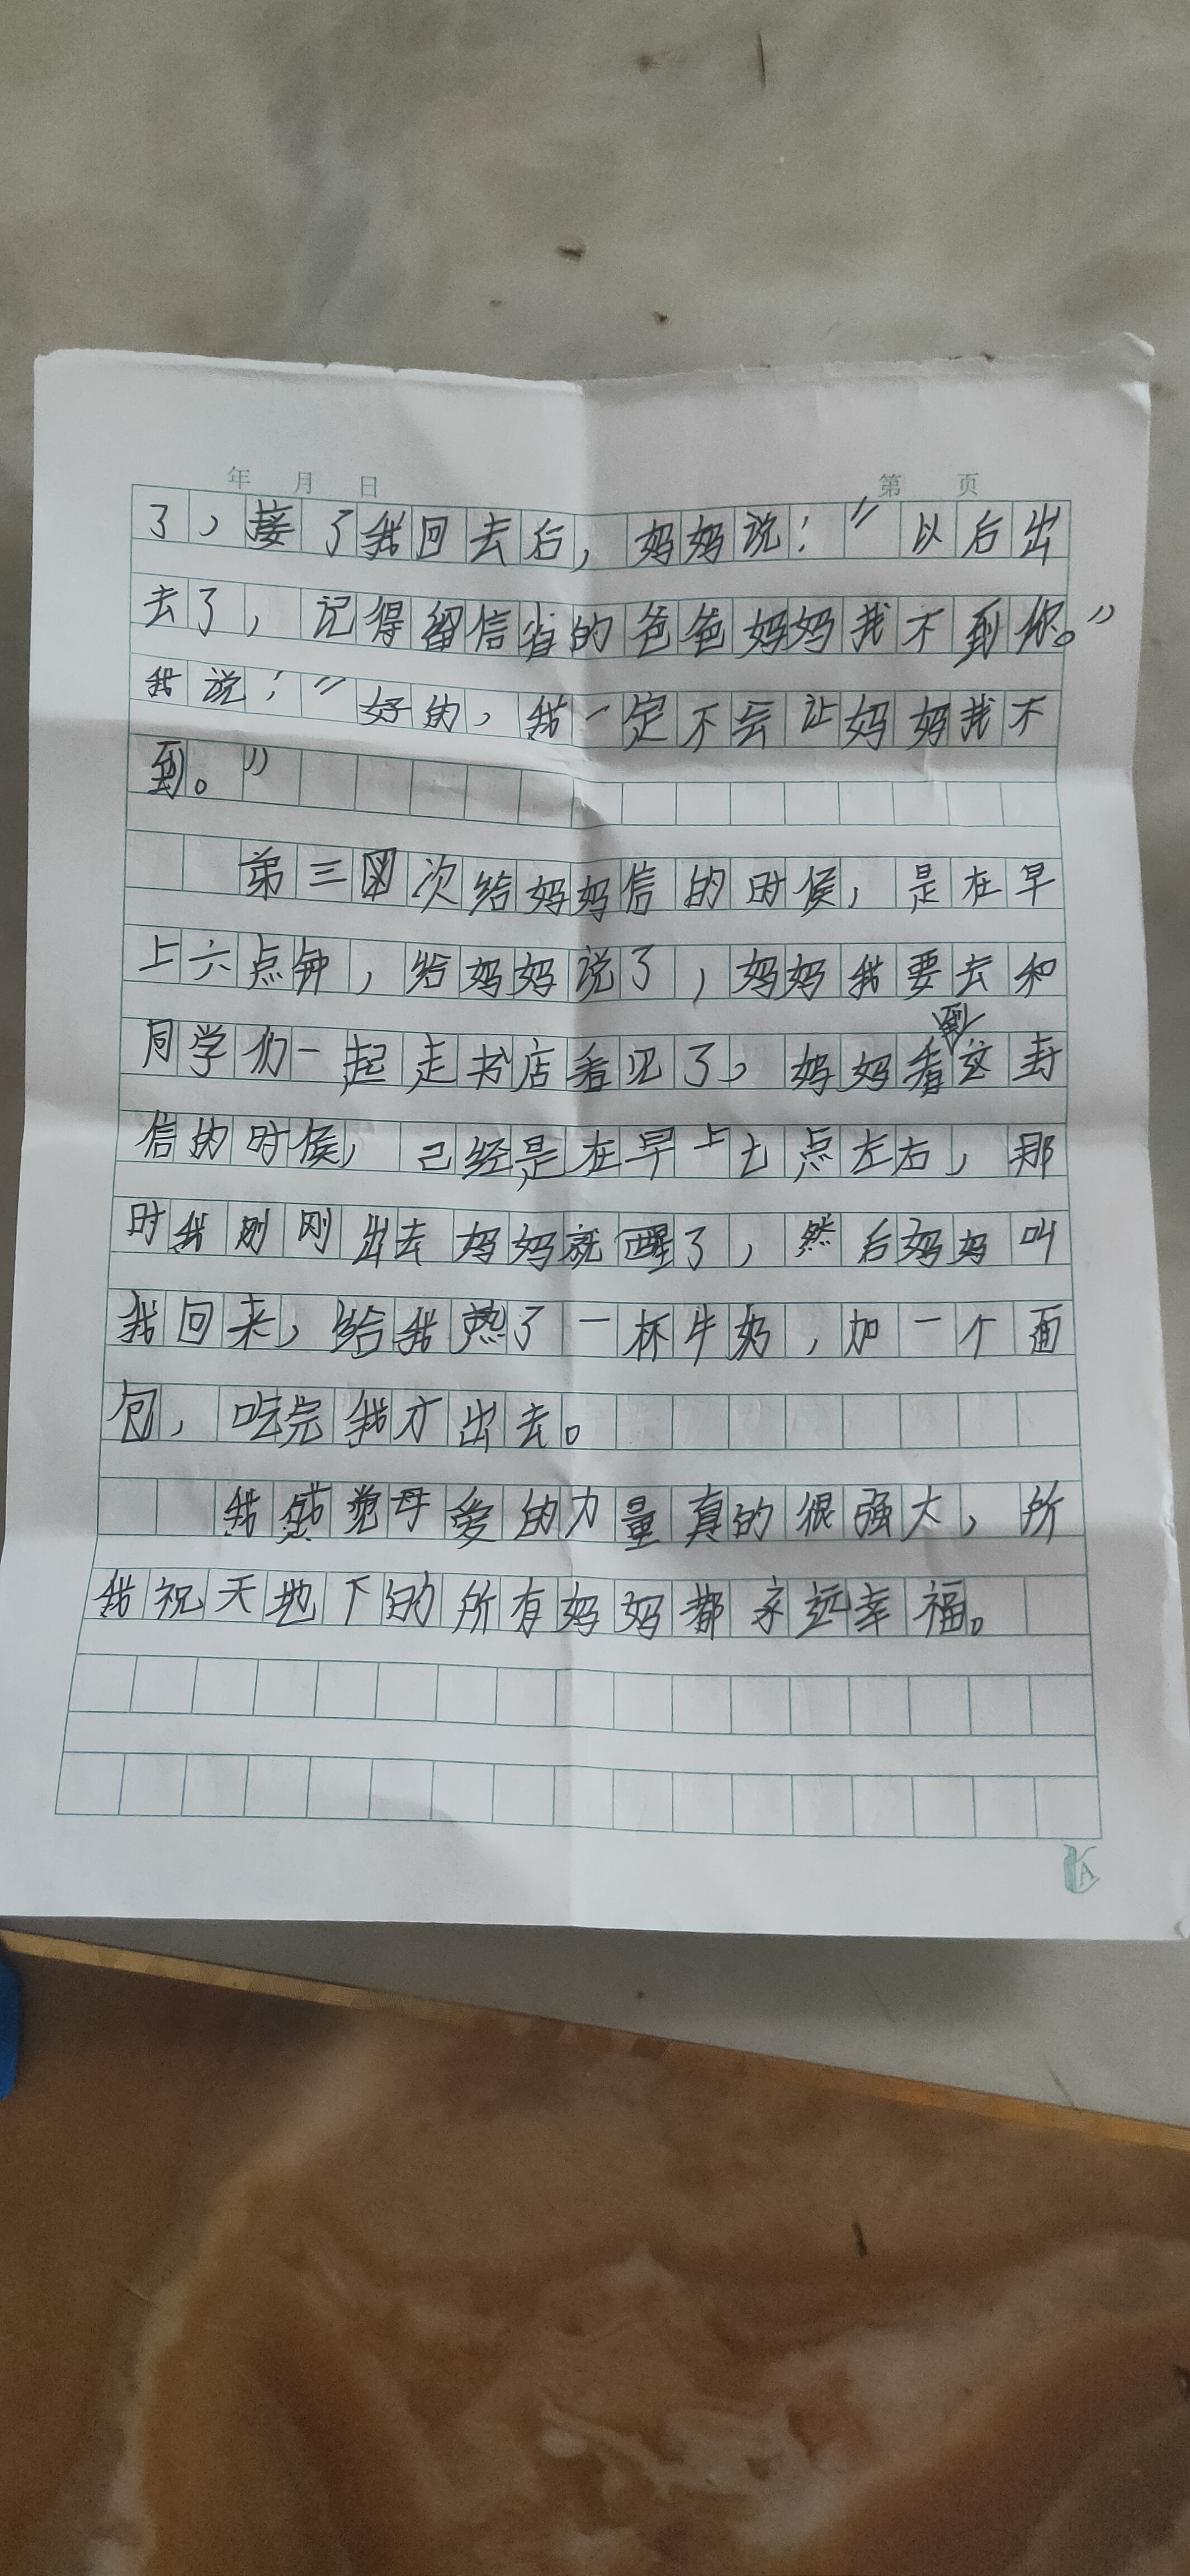 年 月 日 第 页
了，接了我回去后，妈妈说：“以后出
去了，记得留信省的爸爸妈妈找不到你。”
我说：“好的，我一定不会让妈妈找不
到。”
第三次给妈妈信的时候，是在早
上六点钟，给妈妈说了，妈妈我要去和
同学们一起走书店看见了。妈妈看到这封
信的时候，已经是在早上七点左右，那
时我刚刚出去妈妈就醒了，然后妈妈叫
我回来，给我热了一杯牛奶，加一个面
包，吃完我才出去。
我感觉母爱的力量真的很强大，所
我祝天地下的所有妈妈都永远幸福。